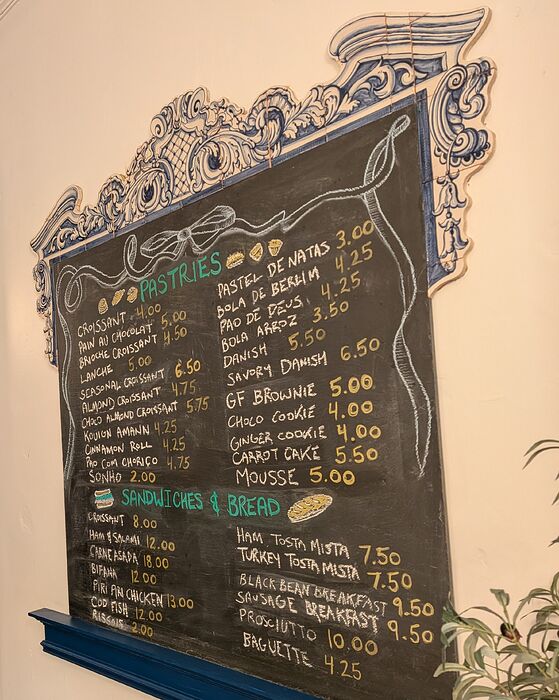 PASTRIES
CROISSANT 4.00
PAIN AU CHOCOLAT 5.00
BRIOCHE CROISSANT 4.50
LANCHE 5.00
SEASONAL CROISSANT 6.50
ALMOND CROISSANT 4.75
CHOCO ALMOND CROISSANT 5.75
KOUIGN AMANN 4.25
CINNAMON ROLL 4.25
PAO COM CHORIÇO 4.75
SONHO 2.00
PASTEL DE NATAS 3.00
BOLA DE BERLIM 4.25
PAO DE DEUS 4.25
BOLA ARROZ 3.50
DANISH 5.50
SAVORY DANISH 6.50
GF BROWNIE 5.00
CHOCO COOKIE 4.00
GINGER COOKIE 4.00
CARROT CAKE 5.50
MOUSSE 5.00
SANDWICHES & BREAD
CROISSANT 8.00
HAM & SALAMI 12.00
CARNE ASADA 18.00
BIFANA 12.00
PIRI PIRI CHICKEN 13.00
COD FISH 12.00
RISSOIS 2.00
HAM TOSTA MISTA 7.50
TURKEY TOSTA MISTA 7.50
BLACK BEAN BREAKFAST 9.50
SAUSAGE BREAKFAST 9.50
PROSCIUTTO 10.00
BAGUETTE 4.25